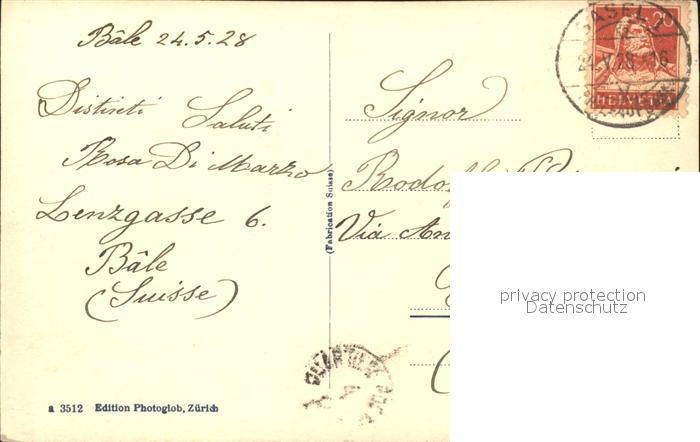 Bâle 24.5.28
Distinti Saluti
Rosa Di Marko
Lenzgasse 6.
Bâle
(Suisse)
a 3512 Edition Photoglob, Zürich
(Fabrication Suisse)
BASEL 1
24.V.28.-16
20
HELVETIA
Signor
Via
privacy protection
Datenschutz